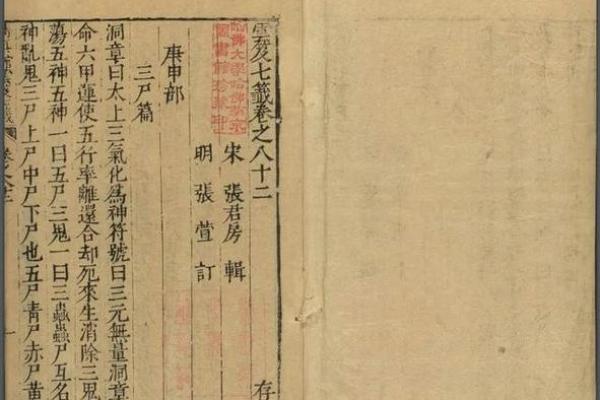 雲笈七籖卷之八十二
存
宋 張君房 輯
明 張萱 訂
庚申部
三尸篇
洞章曰太上三氣化爲神符號曰三元無量洞章
命六甲運使五行率離還合却死來生消除三鬼
蕩五神五神一曰五尸三鬼一曰三蟲蟲尸互名
神亂鬼三尸上尸中尸下尸也五尸青尸赤尸黃